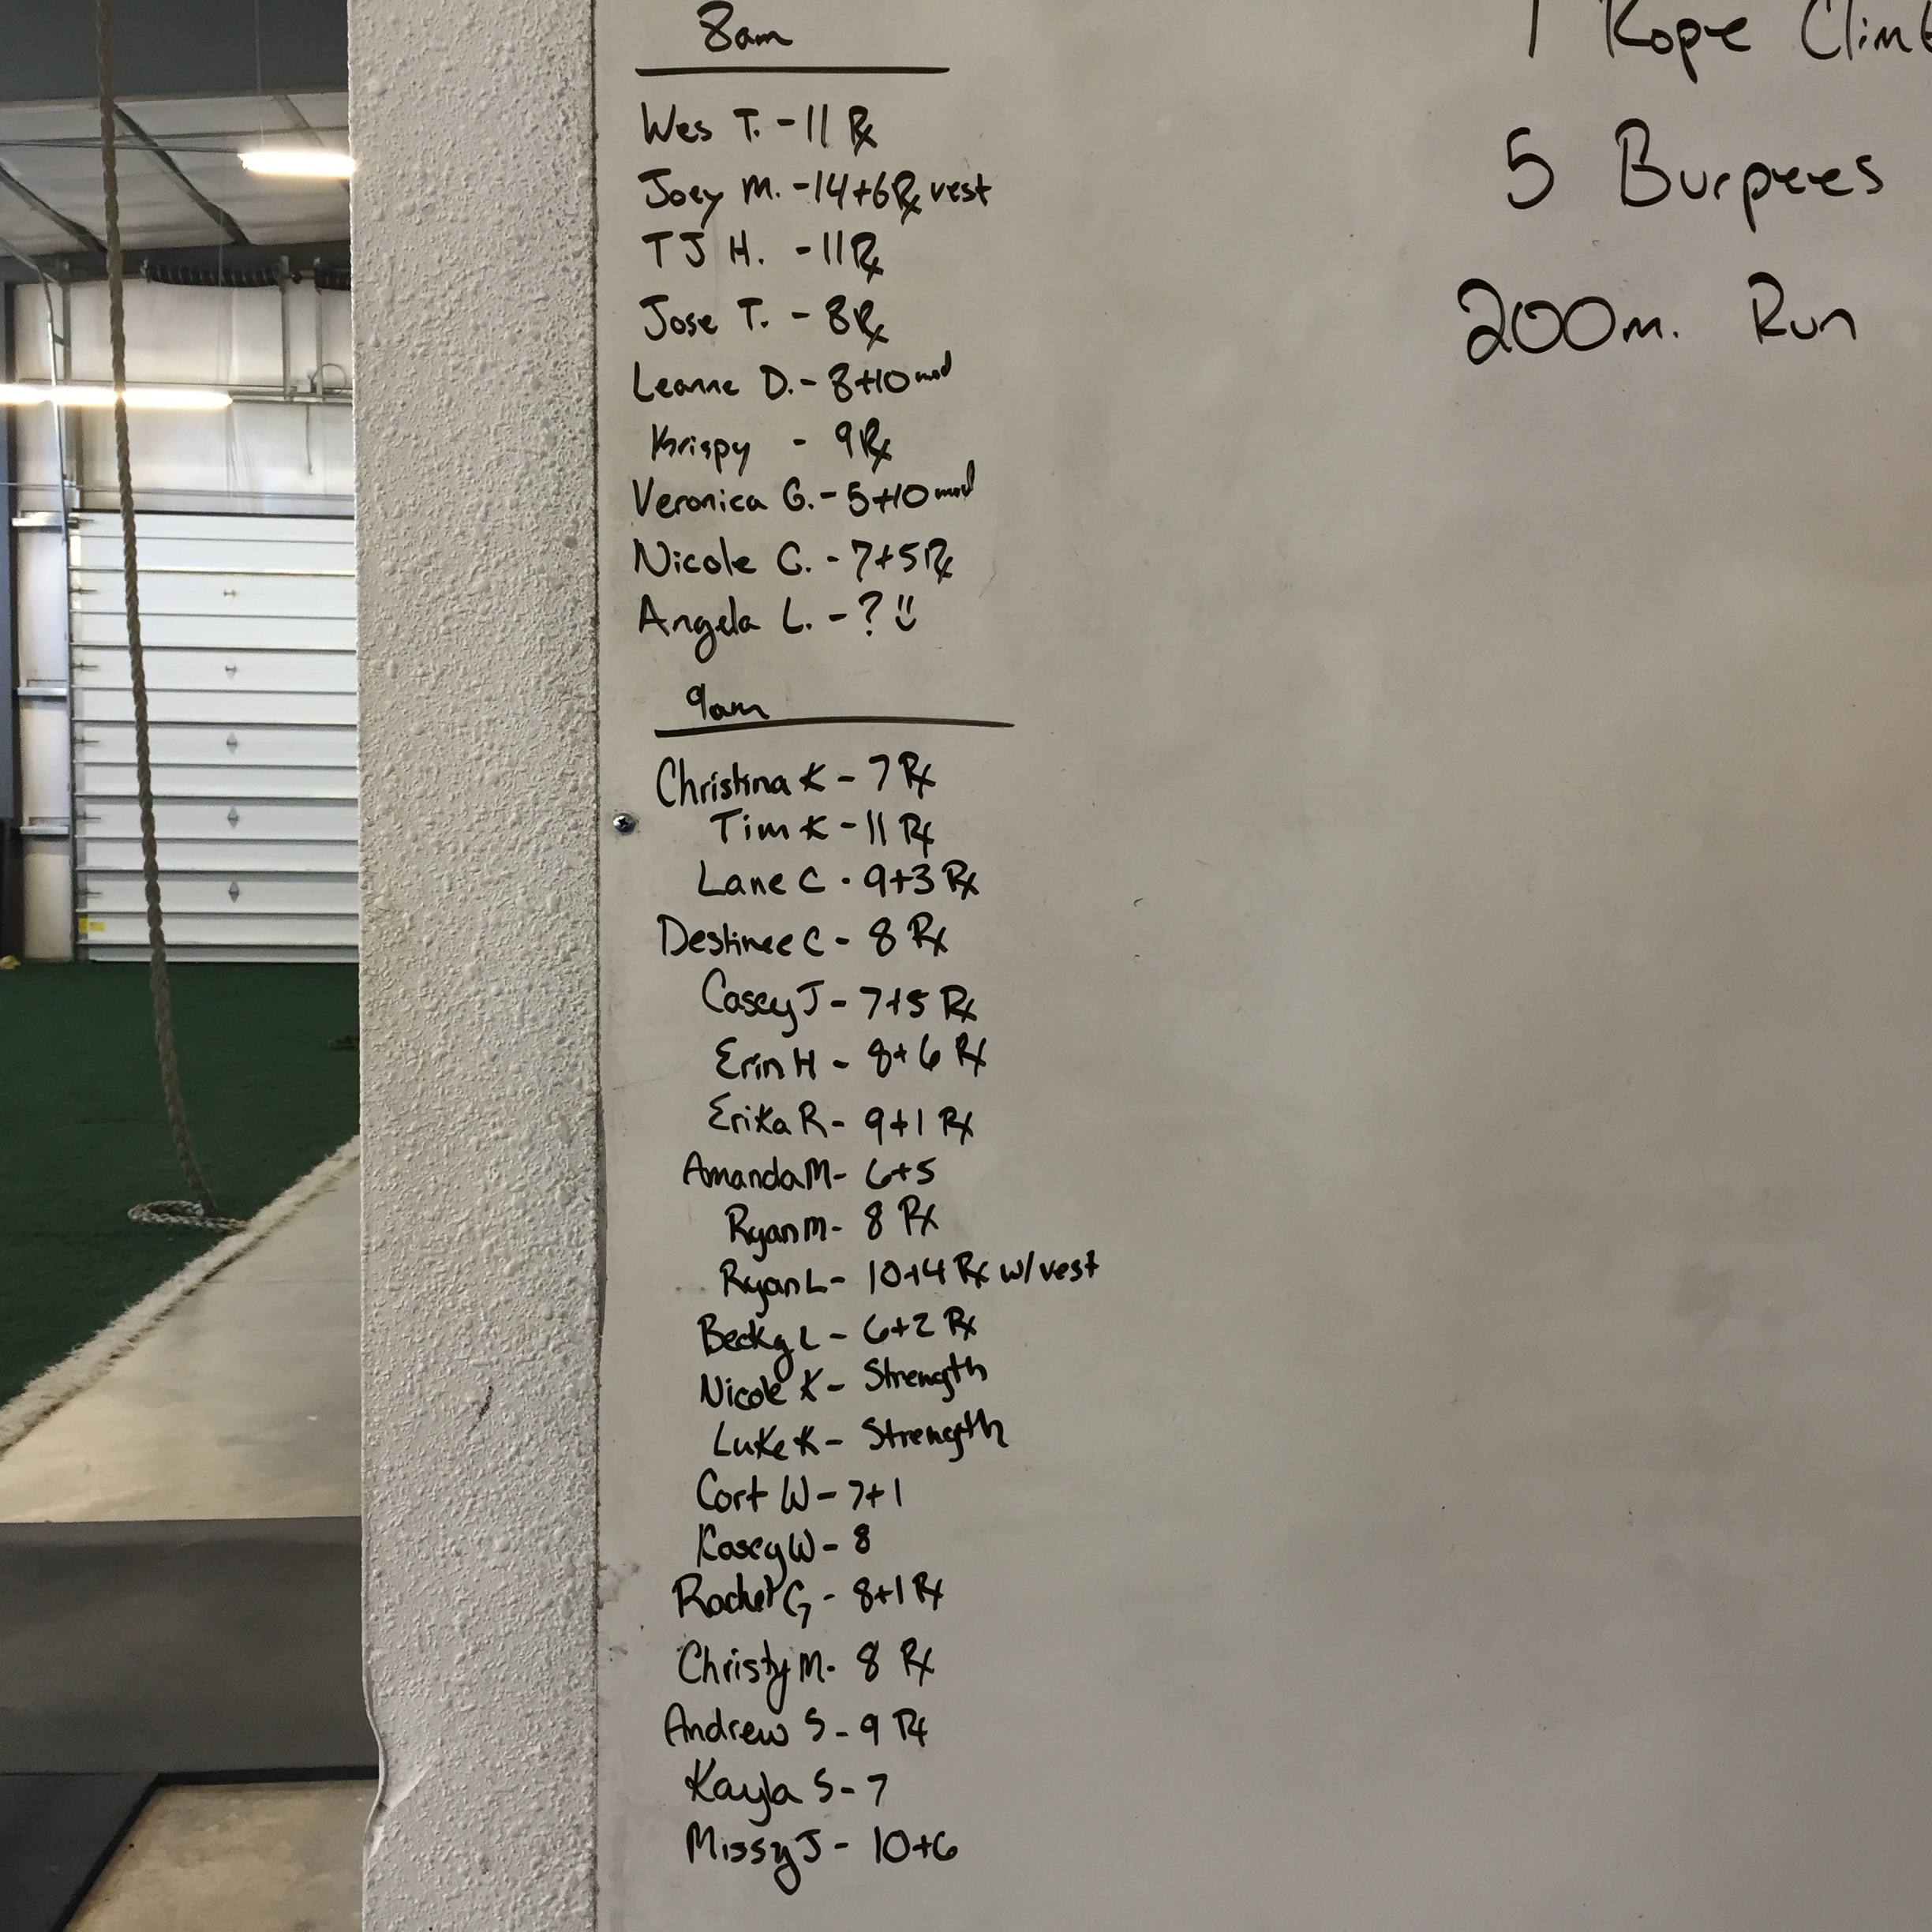 8am
Wes T. - 11 Rx
Joey M. - 14+6 Rx vest
TJ H. - 11 Rx
Jose T. - 8 Rx
Leanne D. - 8+10 mod
Krispy - 9 Rx
Veronica G. - 5+10 mod
Nicole C. - 7+5 Rx
Angela L. - ? ü
9am
Christina K - 7 Rx
Tim K - 11 Rx
Lane C - 9+3 Rx
Destinee C - 8 Rx
Casey J - 7+5 Rx
Erin H - 8+6 Rx
Erika R - 9+1 Rx
Amanda M - 6+5
Ryan M - 8 Rx
Ryan L - 10+4 Rx w/vest
Becky L - 6+2 Rx
Nicole K - Strength
Luke K - Strength
Cort W - 7+1
Kasey W - 8
Rachel G - 8+1 Rx
Christy M - 8 Rx
Andrew S - 9 Rx
Kayla S - 7
Missy J - 10+6
1 Rope Climb
5 Burpees
200m. Run